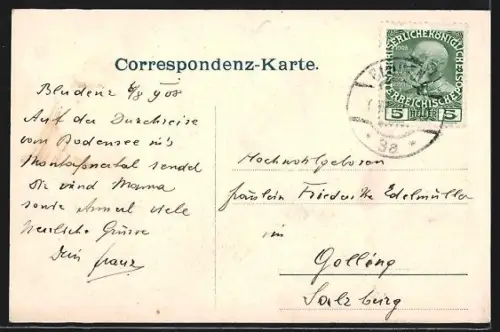 Correspondenz-Karte.
KAISERLICHE KÖNIGLICHE
ÖSTERREICHISCHE POST
5 HELLER 5
* 3a *
Bludenz 6/8 908
Auf der Durchreise
vom Bodensee ins
Montafonertal sendet
dir und Mama
sowie Annerl viele
herzliche Grüsse
Dein Franz
Hochwohlgeboren
Fräulein Friederike Edelmüller
in
Golling
Salzburg